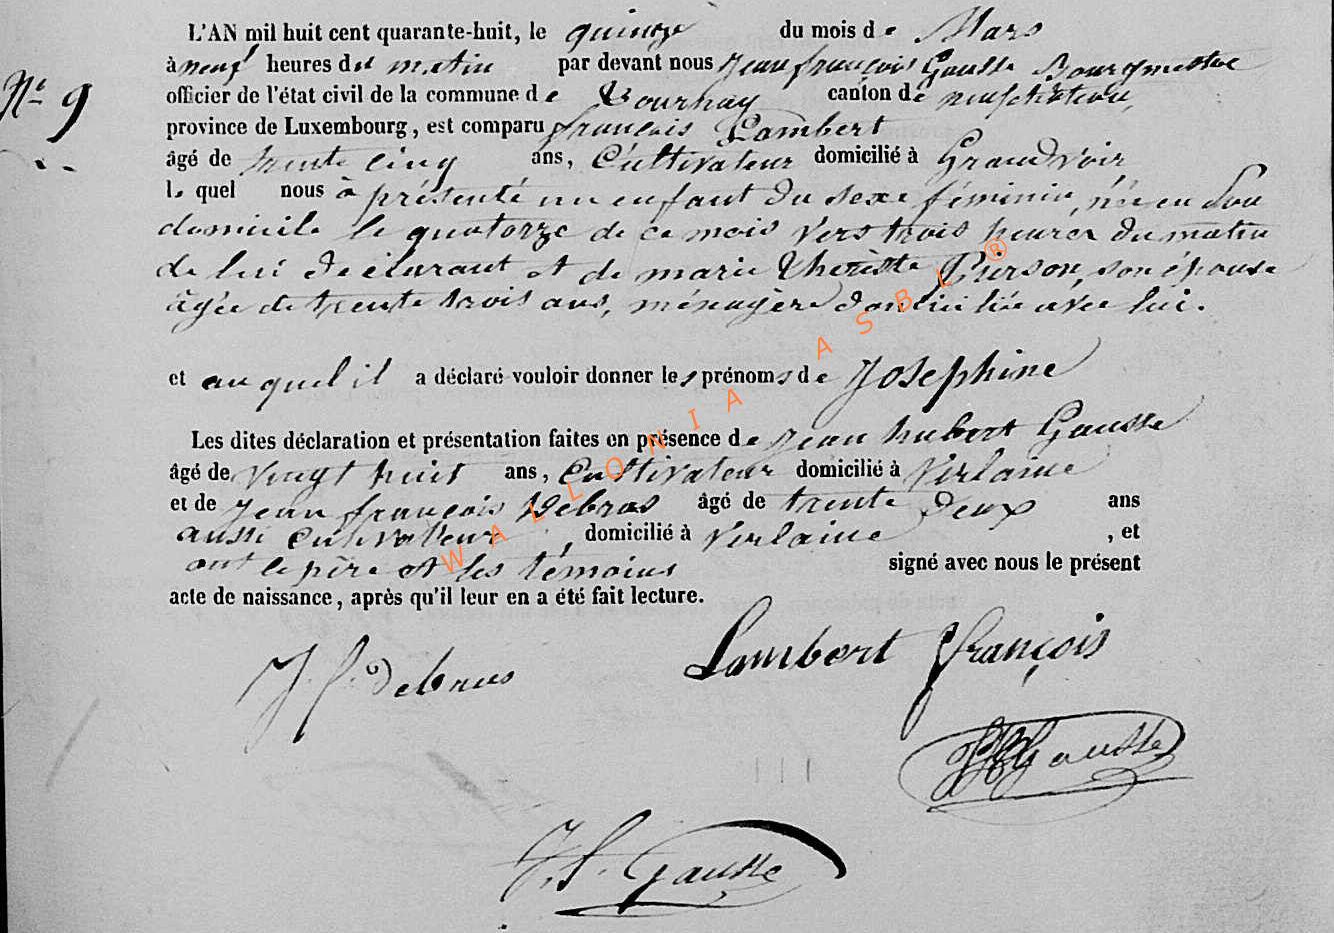 L'AN mil huit cent quarante-huit, le quinze du mois de Mars
à neuf heures du matin par devant nous Jean françois Gausse Bourgmestre
N° 9
officier de l'état civil de la commune de Tournay canton de neufchateau,
province de Luxembourg, est comparu françois Lambert
âgé de trente cinq ans, Cultivateur domicilié à Grandvoir
lequel nous à présenté un enfant du sexe féminin, née en Son
domicile le quatorze de ce mois vers trois heures du matin
de lui declarant et de marie Thérèse Purson, son épouse
âgée de trente trois ans, ménagère domiciliée avec lui.
et auquel il a déclaré vouloir donner les prénoms de Josephine
Les dites déclaration et présentation faites en présence de Jean hubert Gausse
âgé de vingt huit ans, Cultivateur domicilié à Virlaine
et de Jean françois Debras âgé de trente deux ans
aussi cultivateur, domicilié à Verlaine, et
ont le père et les témoins signé avec nous le présent
acte de naissance, après qu'il leur en a été fait lecture.
Lambert françois
J. f. Debras
Gausse
J. f. Gausse
WALLONIA ASBL ®